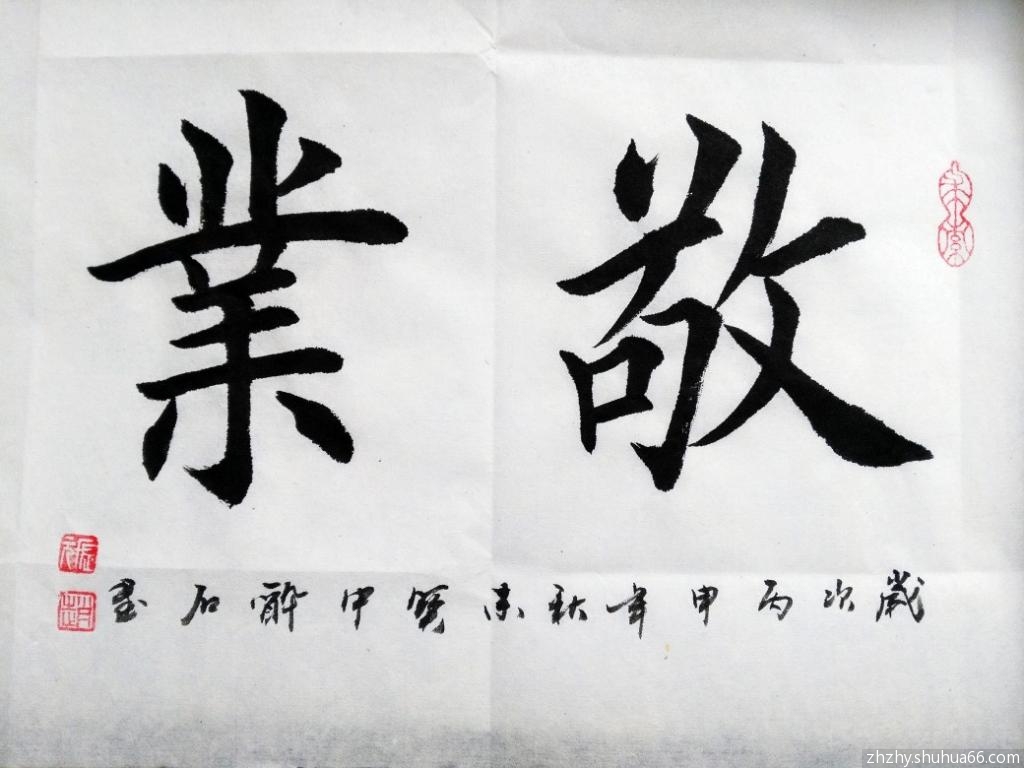 敬業
歲次丙申年秋末寶甲醉石書
zhzhy.shuhua66.com